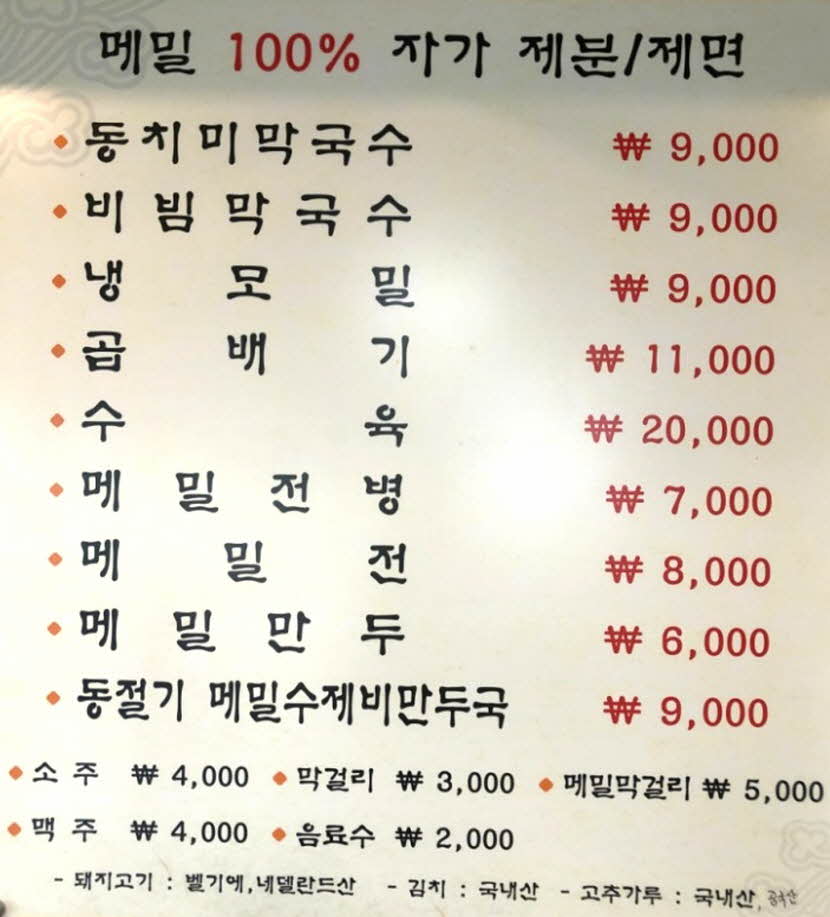 메밀 100% 자가 제분/제면
동치미막국수 ₩ 9,000
비빔막국수 ₩ 9,000
냉모밀 ₩ 9,000
곱배기 ₩ 11,000
수육 ₩ 20,000
메밀전병 ₩ 7,000
메밀전 ₩ 8,000
메밀만두 ₩ 6,000
동절기 메밀수제비만두국 ₩ 9,000
소주 ₩ 4,000 막걸리 ₩ 3,000 메밀막걸리 ₩ 5,000
맥주 ₩ 4,000 음료수 ₩ 2,000
- 돼지고기 : 벨기에,네델란드산 - 김치 : 국내산 - 고추가루 : 국내산,